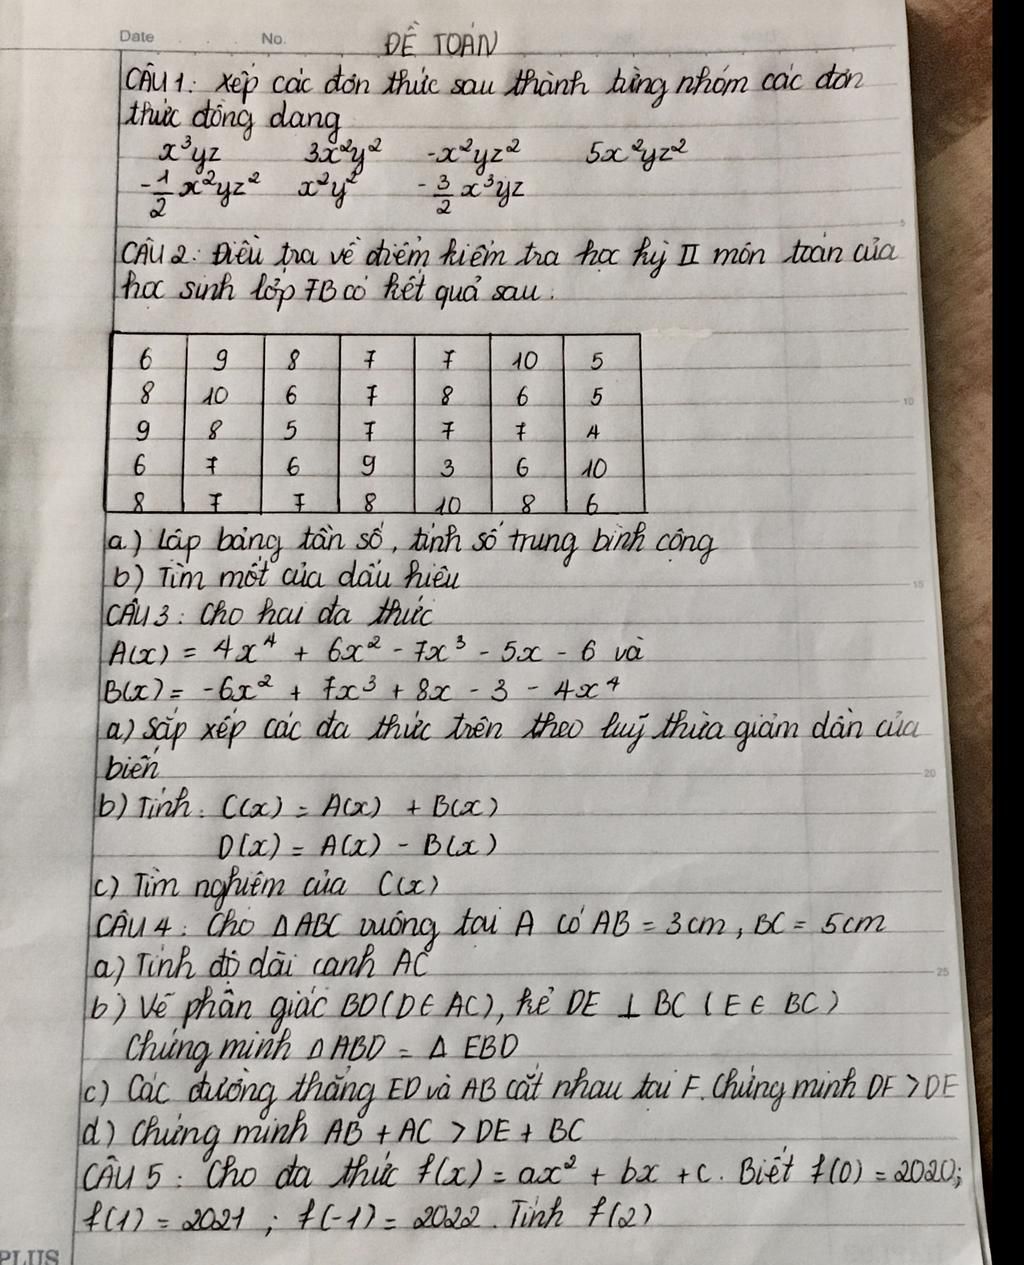 Date No. ĐỀ TOÁN
CÂU 1: xếp các đơn thức sau thành từng nhóm các đơn
thức đồng dạng
x³yz 3x²y² -x²yz² 5x²yz²
-1/2 x²yz² x²y² -3/2 x³yz
CÂU 2: Điều tra về điểm kiểm tra học kỳ II môn toán của
học sinh lớp 7B có kết quả sau:
6 9 8 7 7 10 5
8 10 6 7 8 6 5
9 8 5 7 7 7 4
6 7 6 9 3 6 10
8 7 7 8 10 8 6
a) Lập bảng tần số, tính số trung bình cộng
b) Tìm mốt của dấu hiệu
CÂU 3: Cho hai đa thức
A(x) = 4x⁴ + 6x² - 7x³ - 5x - 6 và
B(x) = -6x² + 7x³ + 8x - 3 - 4x⁴
a) Sắp xếp các đa thức trên theo luỹ thừa giảm dần của
biến
b) Tính: C(x) = A(x) + B(x)
D(x) = A(x) - B(x)
c) Tìm nghiệm của C(x)
CÂU 4: Cho ΔABC vuông tại A có AB = 3cm, BC = 5cm
a) Tính độ dài cạnh AC
b) Vẽ phân giác BD (D ∈ AC), kẻ DE ⊥ BC (E ∈ BC)
Chứng minh ΔABD = ΔEBD
c) Các đường thẳng ED và AB cắt nhau tại F. Chứng minh DF > DE
d) Chứng minh AB + AC > DE + BC
CÂU 5: Cho đa thức f(x) = ax² + bx + c. Biết f(0) = 2020;
f(1) = 2021; f(-1) = 2022. Tính f(2)
5
10
15
20
25
PLUS